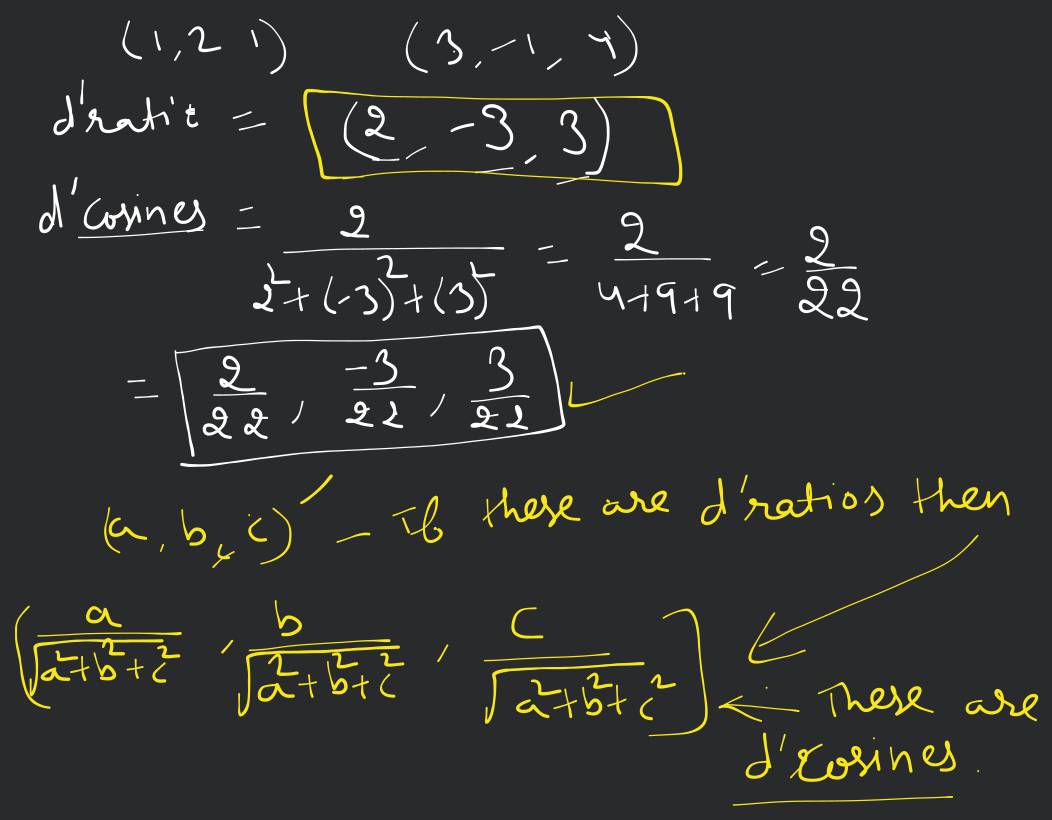 (1,2 1) (3,-1, 4)
d'ratio = (2, -3, 3)
d'cosines = 2/2²+(-3)²+(3)² = 2/4+9+9 = 2/22
= 2/22, -3/22, 3/22
(a, b, c) - If these are d'ratios then
(a/√a²+b²+c², b/√a²+b²+c², c/√a²+b²+c²] ← These are
d'cosines.